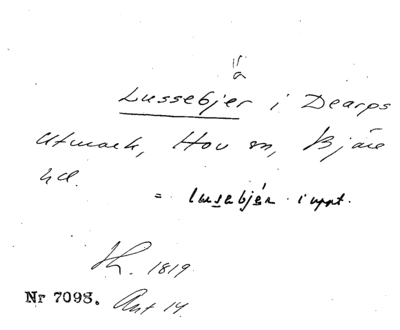 å
Lussebjer i Dearps
utmark, Hov sn, Bjäre
hd.
= lusebjär i uppt.
Sk. 1819
Nr 7098. Ant 14.